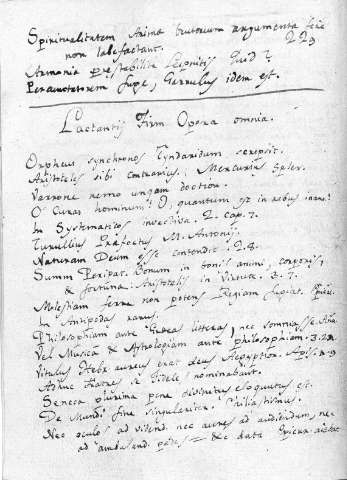 Spiritualitatem Animæ brutorum argumenta
non labefactant. 229
Armonia præstabilita Leipnitii Quid?
Lactantii Firm Opera omnia.
Orpheus synchronos Tyndaridum scripsit.
Aristoteles sibi contrarius; Mercurius
Varrone nemo unqam doctior.
O Curas hominum! O, quantum est in rebus inane!
In Systematicos invectiva. L. cap. 7.
Turullius Præfectus M. Antonij.
Naturam Deum esse contendit. 2. 8.
Summ Peripat. Bonum in bonis animi, corporis,
& fortunæ. Aristotelis in Virtute. 3. 7.
Molestiam ferre non potens
In Antipodas
Philosophiam ante litteras, nec somniasse
Vel Musica & Astrologiam ante philosophiam.
Vitulus Hebr aureus erat deus Aegyption. Apis.
Adhuc fratres & Fidele nominabant.
Seneca plurima pene divinitus eloqutus est.
De Mundi fine singularia. Chiliastismus.
Nec oculos ad vidend. nec aures ad audiendum, nec
ad ambuland. pedes &c data